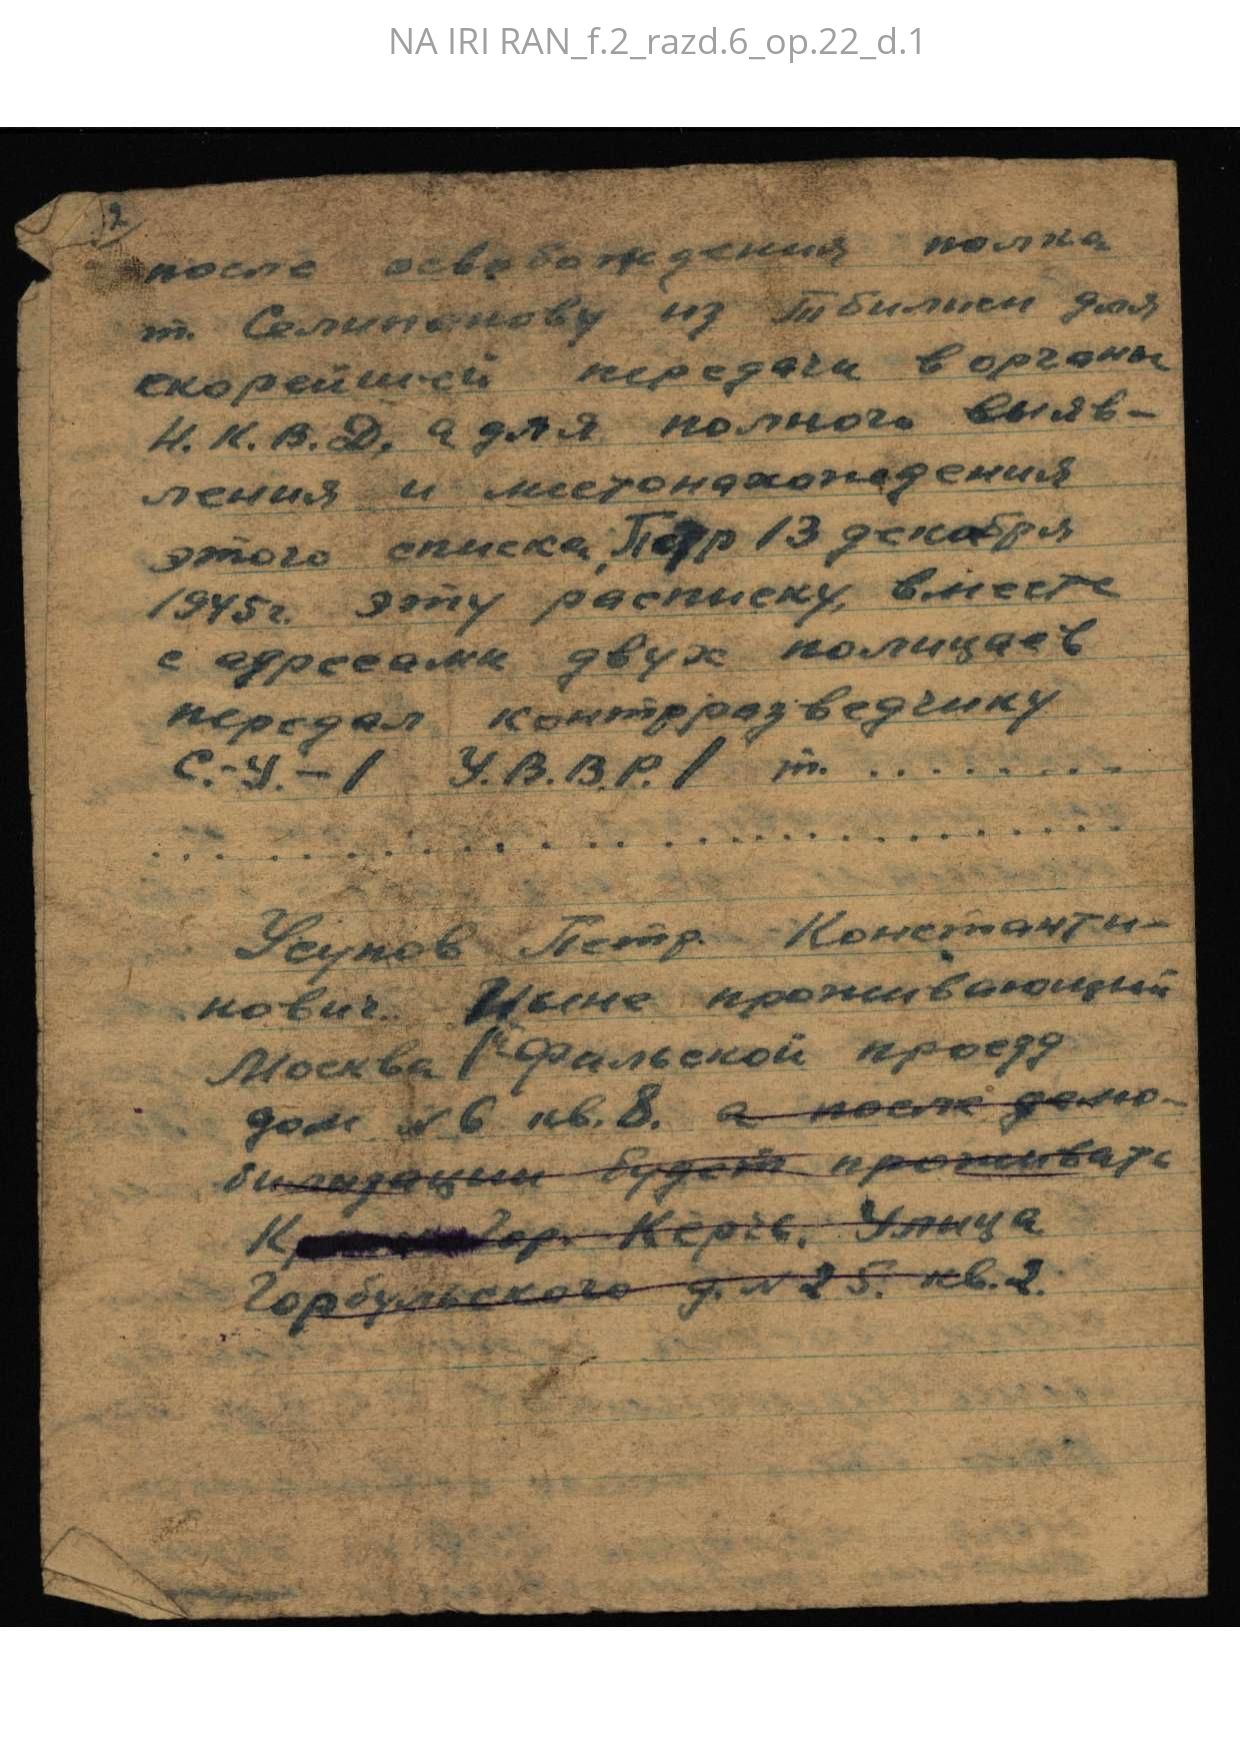 NA IRI RAN_f.2_razd.6_op.22_d.1
2
после освобождения полка
т. Селипанову из Тбилиси для
скорейшей передачи в органы
Н.К.В.Д. а для полного выяв-
ления и местонахождения
этого списка, Петр 13 декабря
1945г. эту расписку, вместе
с адресами двух полицаев
передал контрразведчику
С.-У.-/ У.В.В.Р./ т. . . . . . . . .
. . . . . . . . . . . . . . . . . . . . . . . . . .
Усупов Петр Константи-
нович. Ныне проживающий
Москва 1й Фильской проезд
дом № 6 кв. 8. а после демо-
билизации будет проживать
гор. Керчь. Улица
Горбульского д. № 25. кв. 2.